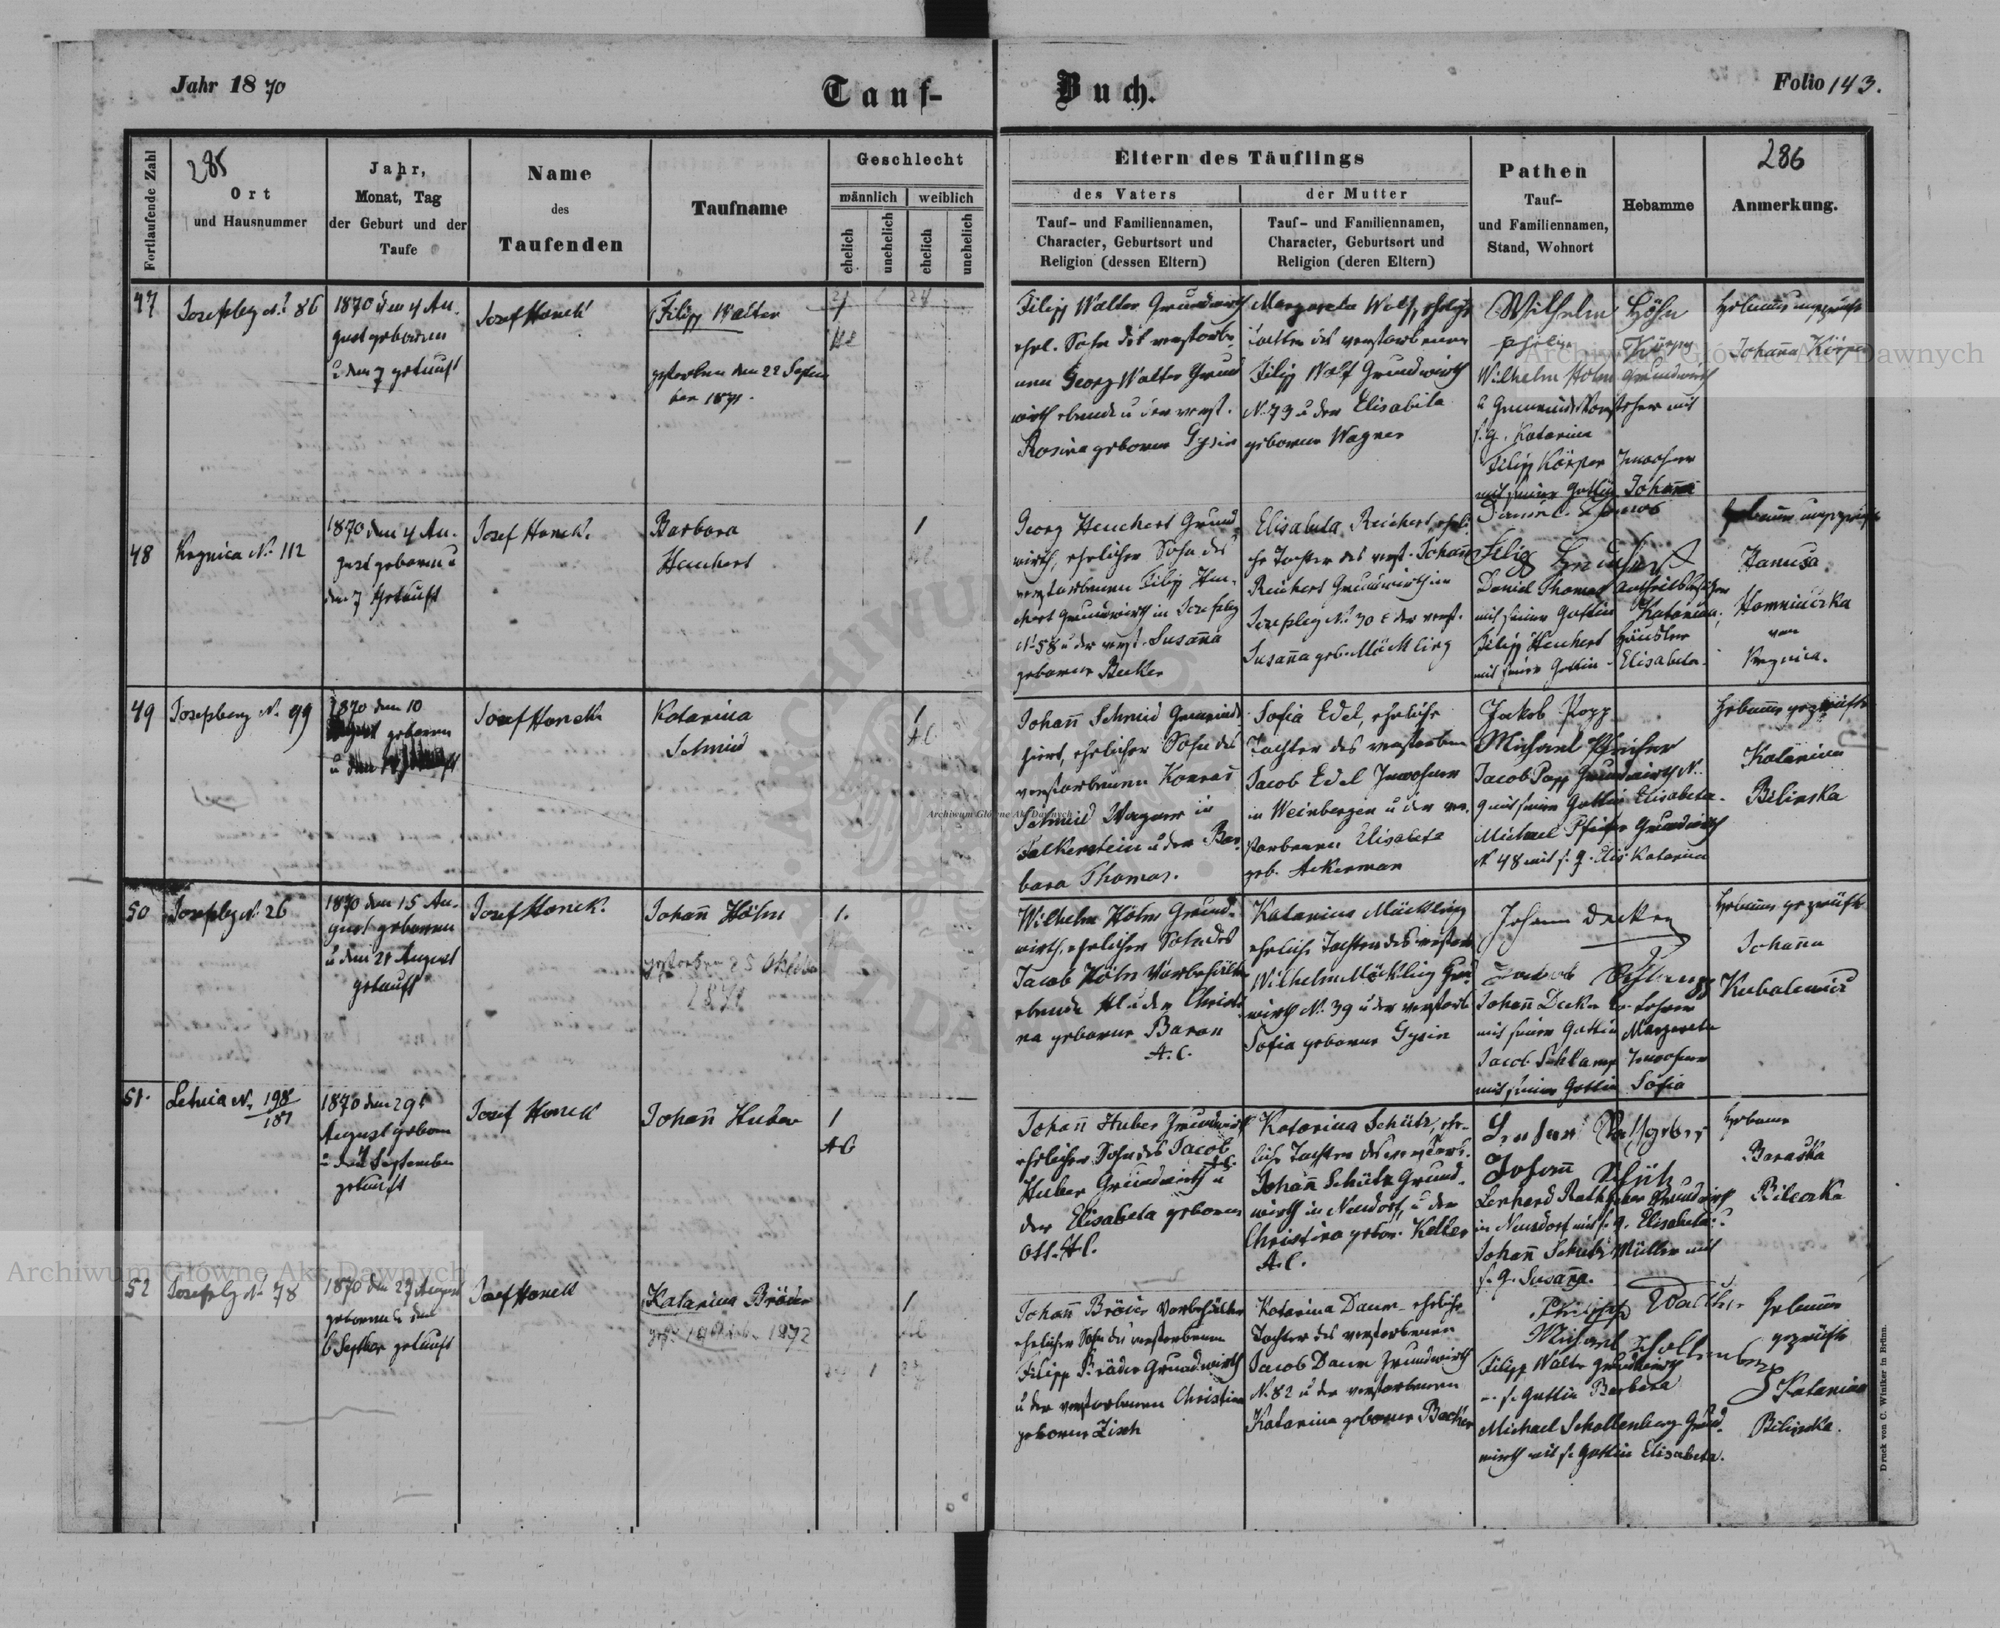 Jahr 1870
Tauf-
Buch.
Folio 143.
Fortlaufende Zahl
285
Ort
und Hausnummer
Jahr,
Monat, Tag
der Geburt und der
Taufe
Name
des
Taufenden
Taufname
Geschlecht
männlich
weiblich
ehelich
unehelich
ehelich
unehelich
Eltern des Täuflings
des Vaters
der Mutter
Tauf- und Familiennamen,
Character, Geburtsort und
Religion (dessen Eltern)
Tauf- und Familiennamen,
Character, Geburtsort und
Religion (deren Eltern)
Pathen
Tauf-
und Familiennamen,
Stand, Wohnort
Hebamme
286
Anmerkung.
47
Josefsbg No 86
1870 den 4 Au-
gust geboren
u den 7 getauft
Josef Honek
Filipp Walter
gestorben den 22 Septem
ber 1871.
Filipp Walter Grundwirth
ehel. Sohn des verstorbe-
nen Georg Walter Grund
wirth ebenda u der verst.
Rosina geborne Gysin
Margareta Wolf, ehelige
Tochter des verstorbenen
Filipp Wolf Grundwirth
No 73 u der Elisabeta
geborene Wagner
Wilhelm Höhn
Philipp Körper
Wilhelm Höhn Grundwirth
u Gemeinde Vorsteher mit
s. g. Katarina
Filipp Körper Inwohner
mit seiner Gattin Johanna
Hebamme ungeprüft
Johanna Körper
48
Krynica No 112
1870 den 4 Au-
gust geboren u
den 7 getauft
Josef Honek.
Barbara
Heuchert
1
Georg Heuchert Grund-
wirth, ehelicher Sohn des
verstorbenen Filip Heu-
chert Grundwirth in Josefsbg
No 58 u der verst. Susanna
geborene Becker
Elisabeta Reichert, eheli-
che Tochter des verst. Johann
Reichert Grundwirth in
Josefsbg No 30 u der verst.
Susanna geb. Mäckling
Daniel Thomas
Daniel Thomas
mit seiner Gattin Katarina,
Filip Heuchert Häusler
mit seiner Gattin Elisabeta.
Hebamme ungeprüft
Hanusa
Homniuczka
von
Krynica.
49
Josefsberg No 99
1870 den 10
August geboren
Josef Honek
Katarina
Schmid
1
A.C.
Johann Schmid Gemeinde
hirt, ehelicher Sohn des
verstorbenen Konrad
Schmid Wagner in
Falkenstein u der Bar-
bara Thomas.
Sofia Edel, eheliche
Tochter des verstorbenen
Jacob Edel Inwohner
in Weinbergen u der ver-
storbenen Elisabeta
geb. Ackerman
Jakob Popp
Michael Pfeifer
Jacob Popp Grundwirth No
9 mit seiner Gattin Elisabeta.
Michael Pfeifer Grundwirth
No 48 mit s. g. Elis Katarina
Hebamme geprüft
Katarina
Bilinska
50
Josefsbg No 26
1870 den 15 Au-
gust geboren
u den 21 August
getauft
Josef Honek.
Johann Höhn
gestorben 25 Oktober
1.
Wilhelm Höhn Grund-
wirth, ehelicher Sohn des
Jacob Höhn Vorbehälter
ebenda AC u der Christi-
na geborene Baron
A.C.
Katarina Mäckling
eheliche Tochter des verstorb
Wilhelm Mäckling Grund
wirth No 39 u der verstorb
Sofia geborene Gysin
Johann Decker
Johann Decker Lehrer
mit seiner Gattin Margareta
Jacob Inwohner
mit seiner Gattin Sofia
Hebamme geprüft
Johanna
Kubalewicz
51.
Letnia No 198
187
1870 den 29
August geboren
u den September
getauft
Josef Honek
Johann Huber
1
AC
Johann Huber Grundwirth
ehelicher Sohn des Jacob
Huber Grundwirth u
der Elisabeta geboren
Ott. A.C.
Katarina Schütz, ehe-
liche Tochter des verstorb.
Johann Schütz Grund-
wirth in Neudorf, u der
Christina gebor. Keller
A.C.
Johann Schütz
Lenhard Rathgeber Grundwirth
in Neudorf mit s. g. Elisabeta u
Johann Schütz Müller mit
s. g. Susanna.
Hebamme
Baraska
Bilecka
52
Josefsbg No 78
1870 den 27 August
geboren u den
6 Septber getauft
Josef Honek
Katarina Bräder
1872
1
Johann Bräder Vorbehälter
ehelicher Sohn des verstorbenen
Filipp Bräder Grundwirth
u der verstorbenen Christina
geborne Zisch
Katarina Daum eheliche
Tochter des verstorbenen
Jacob Daum Grundwirth
No 82 u der verstorbenen
Katarina geborner Becker
Philipp Walther
Michael Schollenberger
Filipp Walter Grundwirth
s. Gattin Barbara
Michael Schollenberg Grund-
wirth mit s. Gattin Elisabeta.
Hebamme
geprüft
Katarina
Bilinska.
Druck von C. Winiker in Brünn.
Archiwum Główne Akt Dawnych
Archiwum Główne Akt Dawnych
Archiwum Główne Akt Dawnych